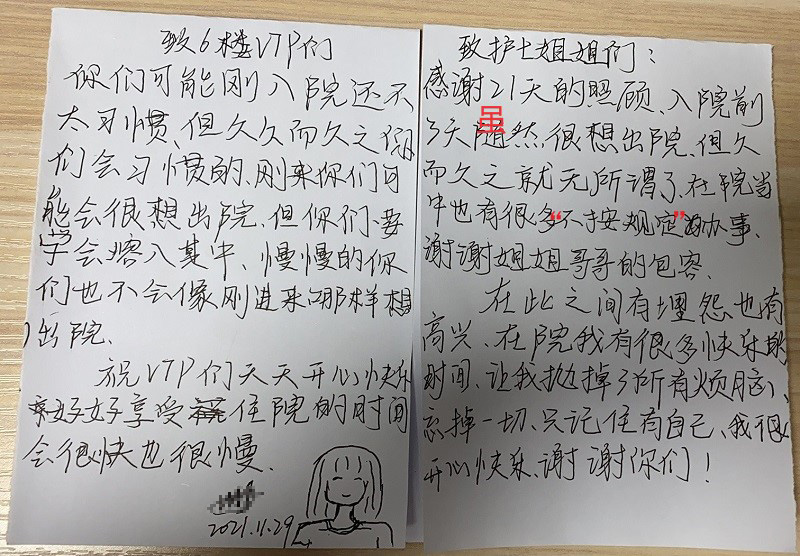 致6楼VIP们
你们可能刚入院还不
太习惯、但久久而久之你
们会习惯的、刚来你们可
能会很想出院、但你们要
学会溶入其中、慢慢的你
们也不会像刚进来哪样想
出院.
祝VIP们天天开心快乐
好好享受住院的时间
会很快也很慢.
2021.11.29
致护士姐姐们：
感谢21天的照顾、入院前
虽
3天随然很想出院、但久
而久之就无所谓了、在院当
中也有很多“不按规定”的办事、
谢谢姐姐哥哥的包容、
在此之间有埋怨也有
高兴、在院我有很多快乐的
时间、让我抛掉了所有烦脑、
忘掉一切、只记住有自己、我很
开心快乐、谢谢你们！